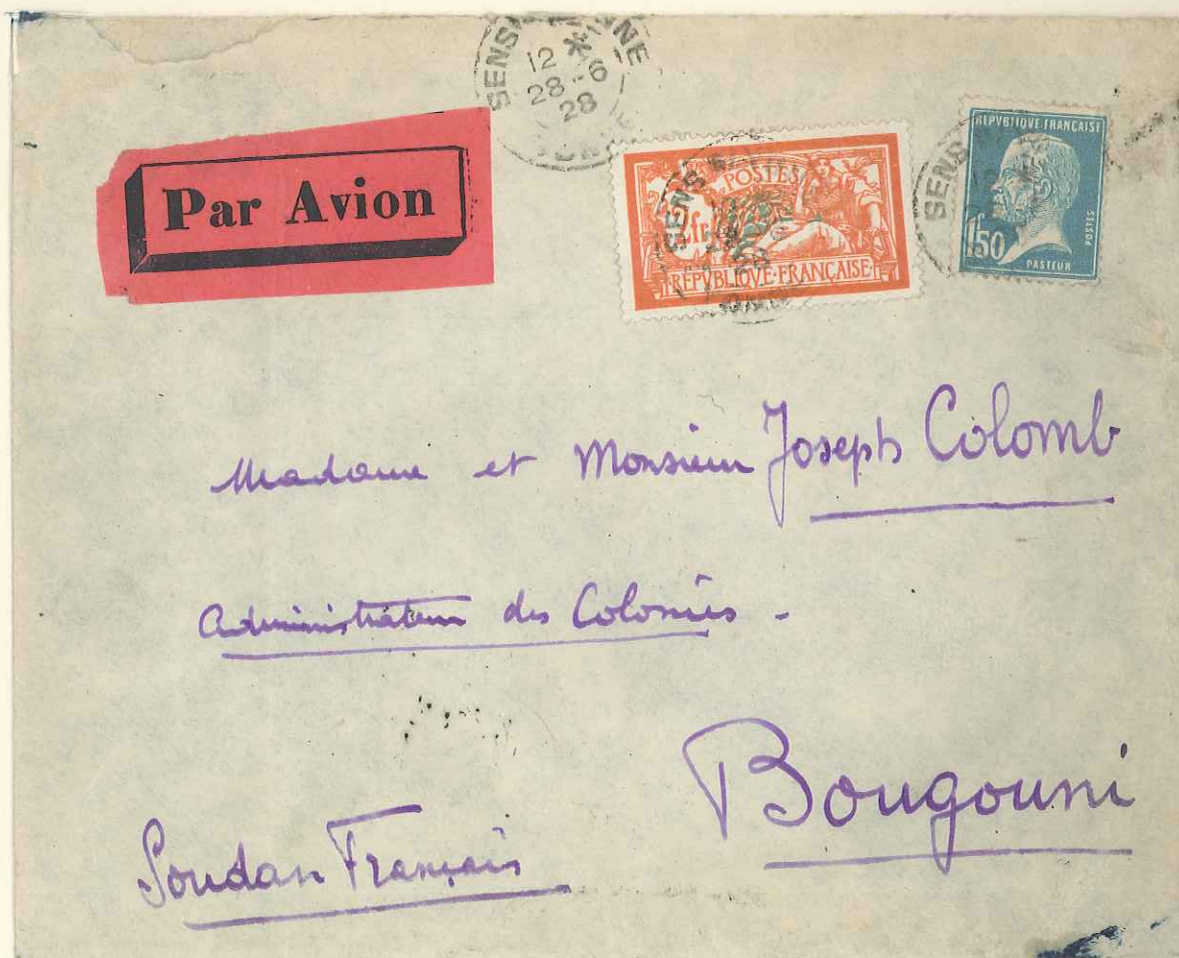 SENS NNE
12 * 6
28 -
28
Par Avion
SENS
POSTES
2fr
REPVBLIQVE·FRANÇAISE
SENS
REPVBLIQVE FRANÇAISE
1f50
POSTES
PASTEUR
Madame et Monsieur Joseph Colomb
Administrateur des Colonies -
Bougouni
Soudan Français